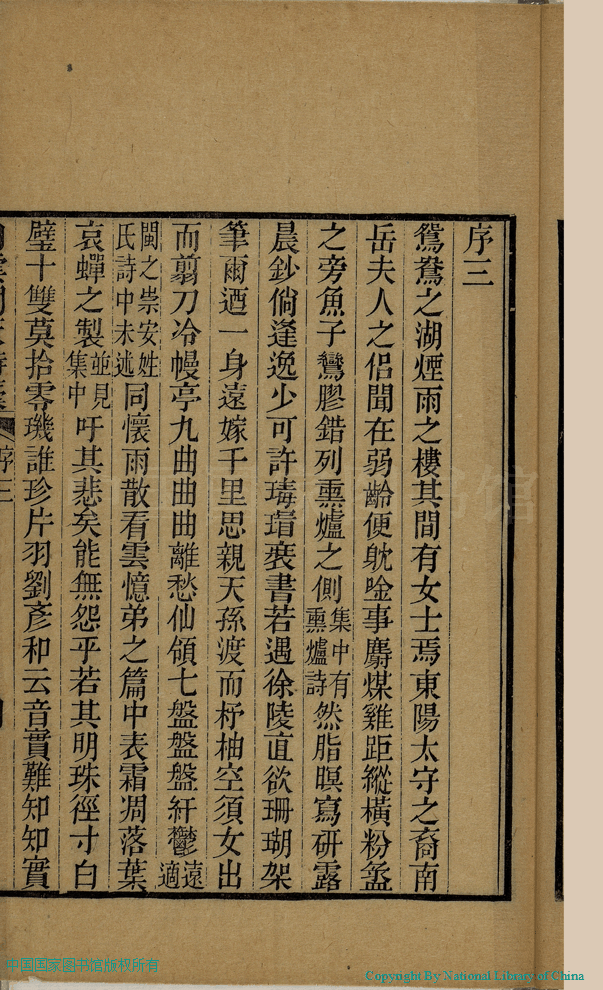 序三
鴛鴦之湖煙雨之樓其間有女士焉東陽太守之裔南
岳夫人之侶聞在弱齡便躭唫事麝煤雞距縱橫粉盝
之旁魚子鸞膠錯列熏爐之側集中有熏爐詩然脂暝寫研露
晨鈔倘逢逸少可許瑇瑁裹書若遇徐陵直欲珊瑚架
筆爾迺一身遠嫁千里思親天孫渡而杼柚空須女出
而翦刀冷幔亭九曲曲曲離愁仙領七盤盤盤紆鬱遠適
閩之祟安姓氏詩中未述同懷雨散看雲憶弟之篇中表霜凋落葉
哀蟬之製並見集中吁其悲矣能無怨乎若其明珠徑寸白
璧十雙莫拾零璣誰珍片羽劉彥和云音實難知知實
序三
中国国家图书馆版权所有
Copyright By National Library of China